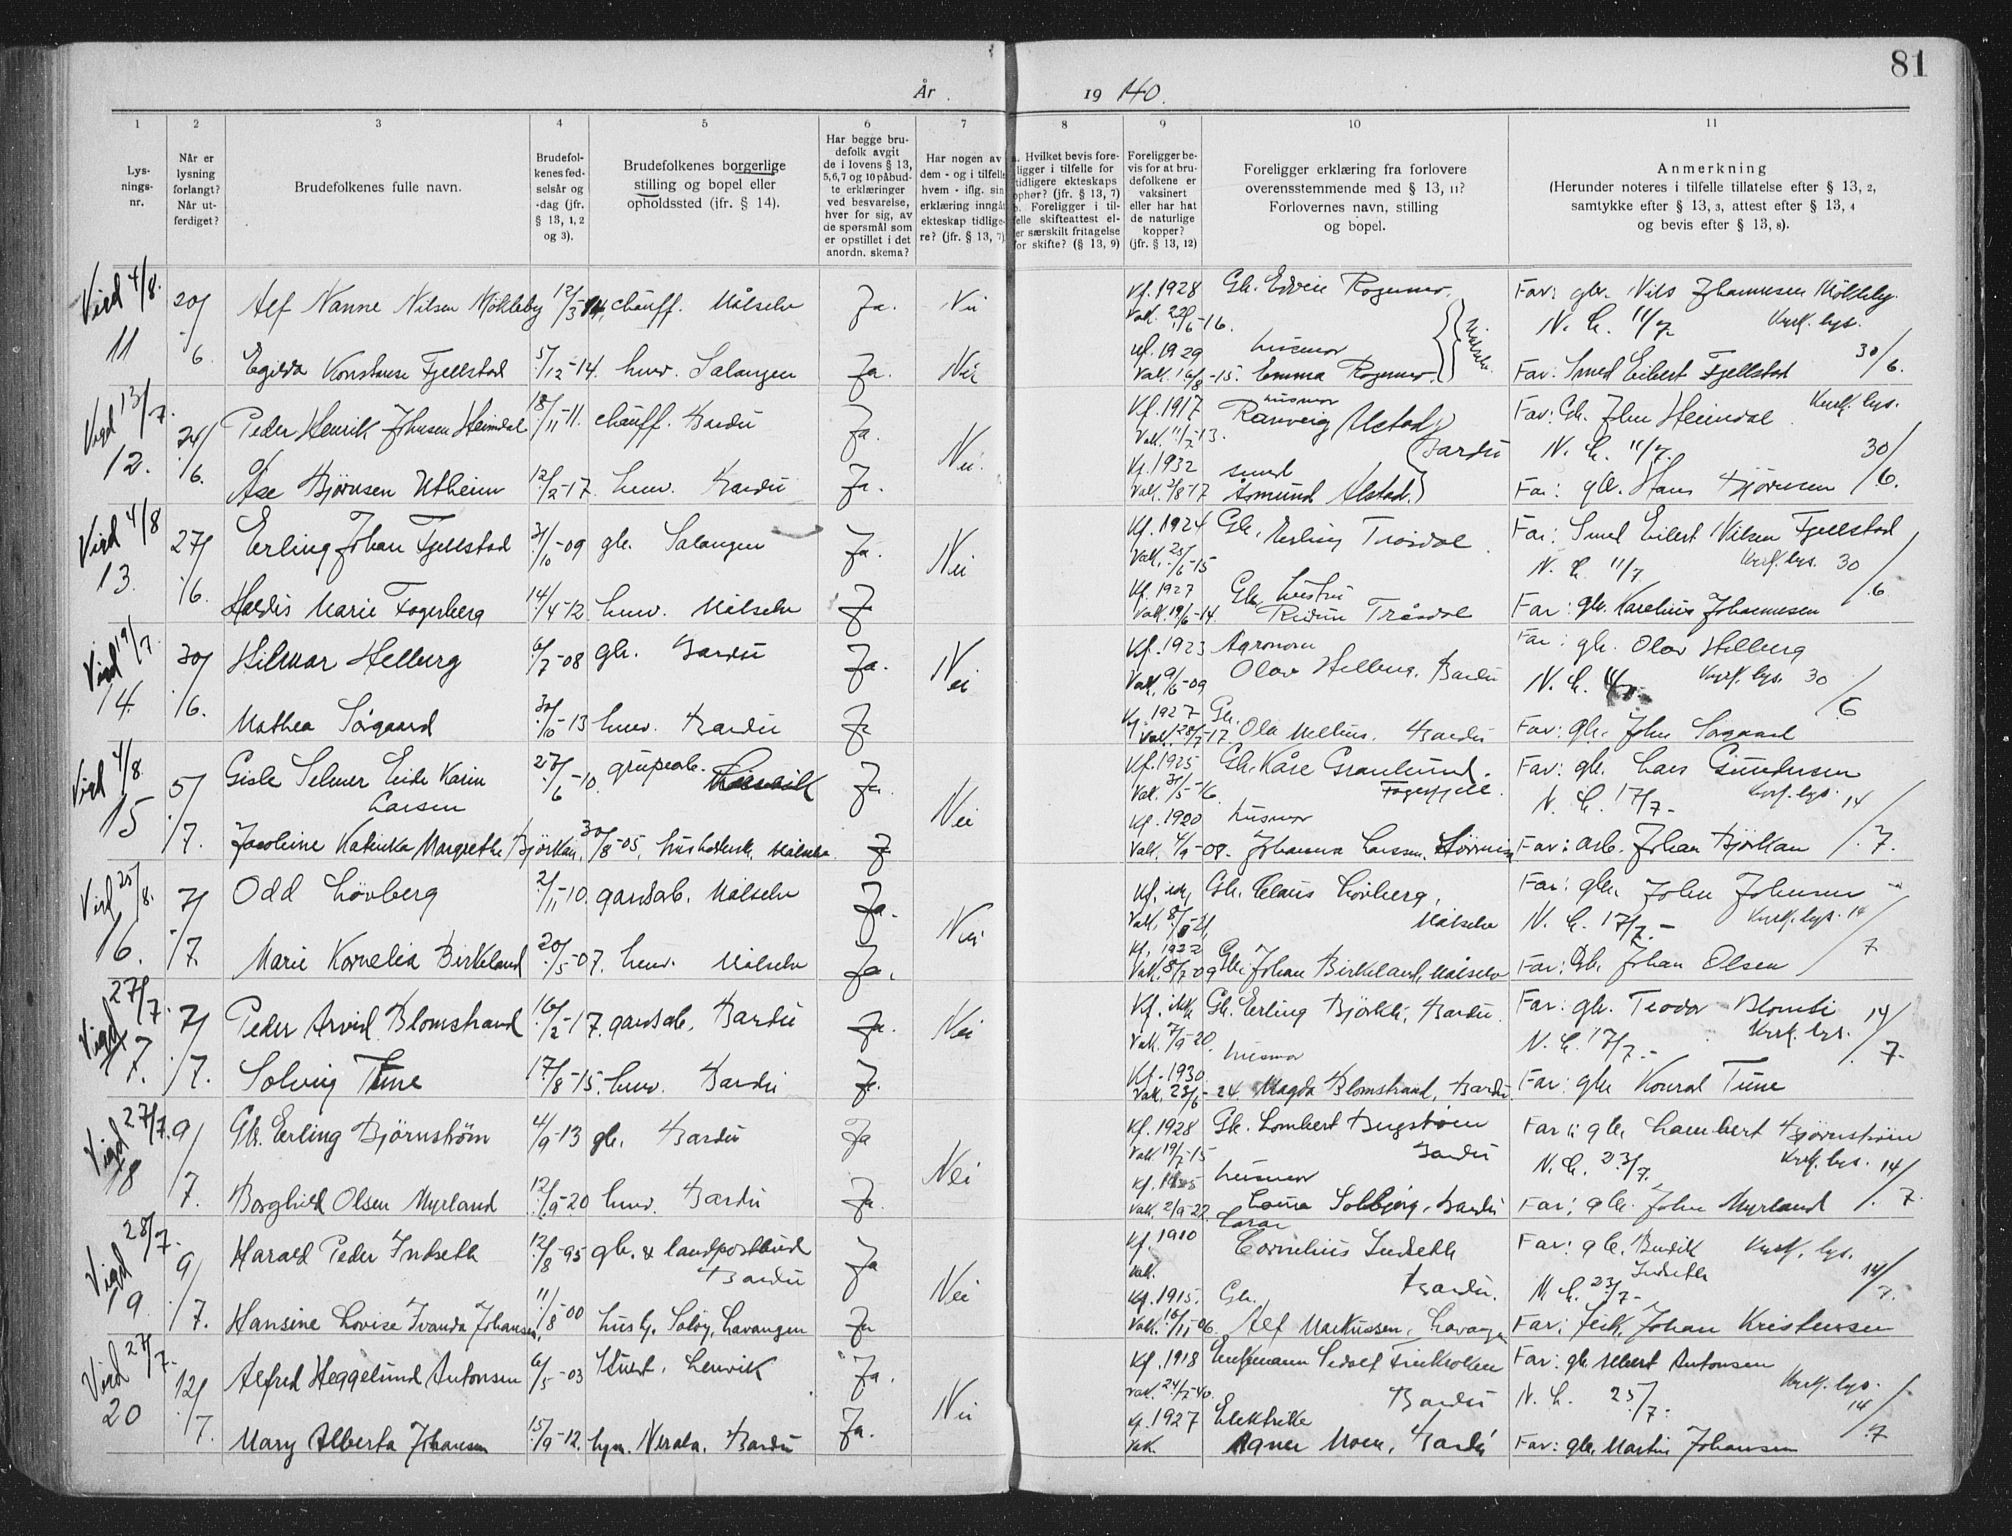 81
År 1940.
1 2 3 4 5 6 7 8 9 10 11
Lys-
nings-
nr.
Når er
lysning
forlangt?
Når ut-
ferdiget?
Brudefolkenes fulle navn.
Brudefol-
kenes fød-
selsår og
-dag (jfr.
§ 13, 1, 2
og 3).
Brudefolkenes borgerlige
stilling og bopel eller
opholdssted (ifr. § 14).
Har begge bru-
defolk avgit
de i lovens § 13,
5,6,7 og 10 påbud-
te erklæringer
ved besvarelse,
hver for sig, av
de spørsmål som
er opstillet i det
anordn. skema?
Har nogen av
dem - og i tilfelle
hvem - iflg. sin
erklæring inngåt
ekteskap tidlige-
re? (jfr. § 13, 7)
a. Hvilket bevis fore-
ligger i tilfelle for
tidligere ekteskaps
ophør? (jfr. § 13, 7)
b. Foreligger i til-
felle skifteattest el-
ler særskilt fritagelse
for skifte? (§ 13, 9)
Foreligger be-
vis for at bru-
defolkene er
vaksinert
eller har hat
de naturlige
kopper?
(jfr. § 13, 12)
Foreligger erklæring fra forlovere
overensstemmende med § 13, 11?
Forlovernes navn, stilling
og bopel.
Anmerkning
(Herunder noteres i tilfelle tillatelse efter § 13, 2,
samtykke efter § 13, 3, attest efter § 13, 4
og bevis efter § 13, 8).
Viel 4/8. 11 20/6. Alf Nanne Nilsen Mykleby 12/3 14. chauff. Målselv Ja. Nei Kf. 1928 Gb. Edvin Rognmo. Far: gbr. Nils Johannesen Mykleby.
Vak. 22/6-16. N. L. 11/7 Kyrk. lys. 30/6.
Egilda Konstanse Fjellstad 5/12-14. husv. Salangen Ja. Nei Kf. 1929 husmor
Vak. 16/8-15. Emma Rognmo. Målselv. Far: Smed Eilert Fjellstad
Vigd 13/7. 12. 24/6. Peder Henrik Johnsen Heimdal 18/11-11. chauff. Bardu Ja. Nei. Kf. 1917 husmor Far: Gb. John Heimdal Kyrk. lys.
Vak. 11/7-13. Ranveig Alstad, Bardu N. L. 11/7. 30/6.
Åse Bjørnsen Utheim 12/2-17. husv. Bardu Ja. Kf. 1932 smed
Vak. 2/8-17 Åsmund Alstad. Far: gbr. Hans Bjørnsen
Viel 4/8 13. 27/6. Erling Johan Fjellstad 31/10-09 gbr. Salangen Ja. Nei Kf. 1924 Gb. Erling Trøsdal. Far: Smed Eilert Nilsen Fjellstad
Vak. 25/6-15 N. L. 11/7 Kyrk. lys. 30/6.
Haldis Marie Fagerberg 14/4-12. husv. Målselv Ja Kf. 1927 Gb. hustru
Vak. 19/6-14. Ridun Trøsdal Far: gbr. Karelius Johannesen
Viel 19/7. 14. 30/6. Hilmar Helberg 6/7-08 gbr. Bardu Ja. Nei Kf. 1923 Agronom Far: gbr. Olav Helberg
Vak. 9/6-09 Olav Helberg. Bardu N. L. Kyrk. lys. 30/6
Mathea Sørgaard 30/10-13 husv. Bardu Ja Kf. 1927 Gb.
Vak. 28/7-17. Ola Melhus. Bardu Far: gbr. John Sørgaard
Viel 4/8. 15 5/7. Gisle Selmer Eide Karin Larsen 27/6-10. grupearb. Ja. Nei Kf. 1925 Gb. Kåre Granlund. Far: gb. Lars Gundersen
Vak. 31/5-16. Fagerfjell. N. L. 17/7- Kyrk. lys. 14/7.
Jacobine Katinka Margrethe Bjørkan. 30/8-05. husholdersk. Målselv. Ja Kf. 1920 husmor
Vak. 4/9-08. Johanna Larssen. Far: arb. Johan Bjørkan
Viel 25/8. 16. 7/7 Odd Løvberg 2/11-10. gardsarb. Målselv Ja. Nei Kf. ikkj Gb. Claus Løvberg, Far: gbr. John Johnsen
Vak. 8/8-21 Målselv N. L. 17/7.- Kyrk. lys. 14/7
Marie Kornelia Birkeland 20/5-07. husv. Målselv Ja. Kf. 1922
Vak. 8/7-09 Gbr. Johan Birkeland, Målselv Far: Gb. Johan Olsen
Vigd 27/7. 17. 7/7. Peder Arvid Blomstrand 16/2-17. gardsarb. Bardu Ja. Nei Kf. ikk Gb. Erling Bjørkli, Bardu. Far: gbr. Teodor Blomli
Vak. 7/9-20. N. L. 17/7.- Kyrk. lys. 14/7.
Solveig Tune 17/8-15. husv. Bardu Ja. Kf. 1930 husmor
Vak. 23/6-24. Magda Blomstrand, Bardu. Far: gbr Konrad Tune
Vigd 27/7. 18 9/7. Gb. Erling Bjørnstrøm 4/9-13 gbr. Bardu Ja Nei Kf. 1928 Gb. Lombert Bugstøien Far: gbr. Lambert Bjørnstrøm
Vak. 19/7-15 Bardu N. L. 23/7. Kyrk. lys. 14/7.
Borghild Olsen Myrland 12/9-20 husv. Bardu Ja. Kf. husmor
Vak. 2/9-22. Laura Solbjørg, Bardu Far: gbr. John Myrland
Vigd 28/7. 19. 9/7. Harald Peder Indseth 12/8 95 gbr. & landpostbud Bardu Ja Nei Kf. 1910 Cornelius Indseth Far: gbr. Budik Indseth Kyrk. lys.
Vak. Bardu. N. L. 23/7- 14/7.
Hansine Lovise Ivanda Johansen. 11/8 00 hush. Soløy, Lavangen Ja Kf. 1915. Gb.
Vak. 16/11-06. Alf Markussen, Lavangen Far: fisk. Johan Kristensen
Viel 27/7. 20 12/7. Alfred Heggelund Antonsen 6/5-03 Lenvik Ja. Nei Kf. 1918 Finkroken Far: gb. Albert Antonsen
Vak. 24/7-40. Bardu N. L. 25/7. Kyrk. lys. 14/7
Mary Alberta Johansen 15/9-12. Bardu Ja. Kf. 1927 Elektrike
Vak. Agner Moen, Bardu Far: gbr. Martin Johansen